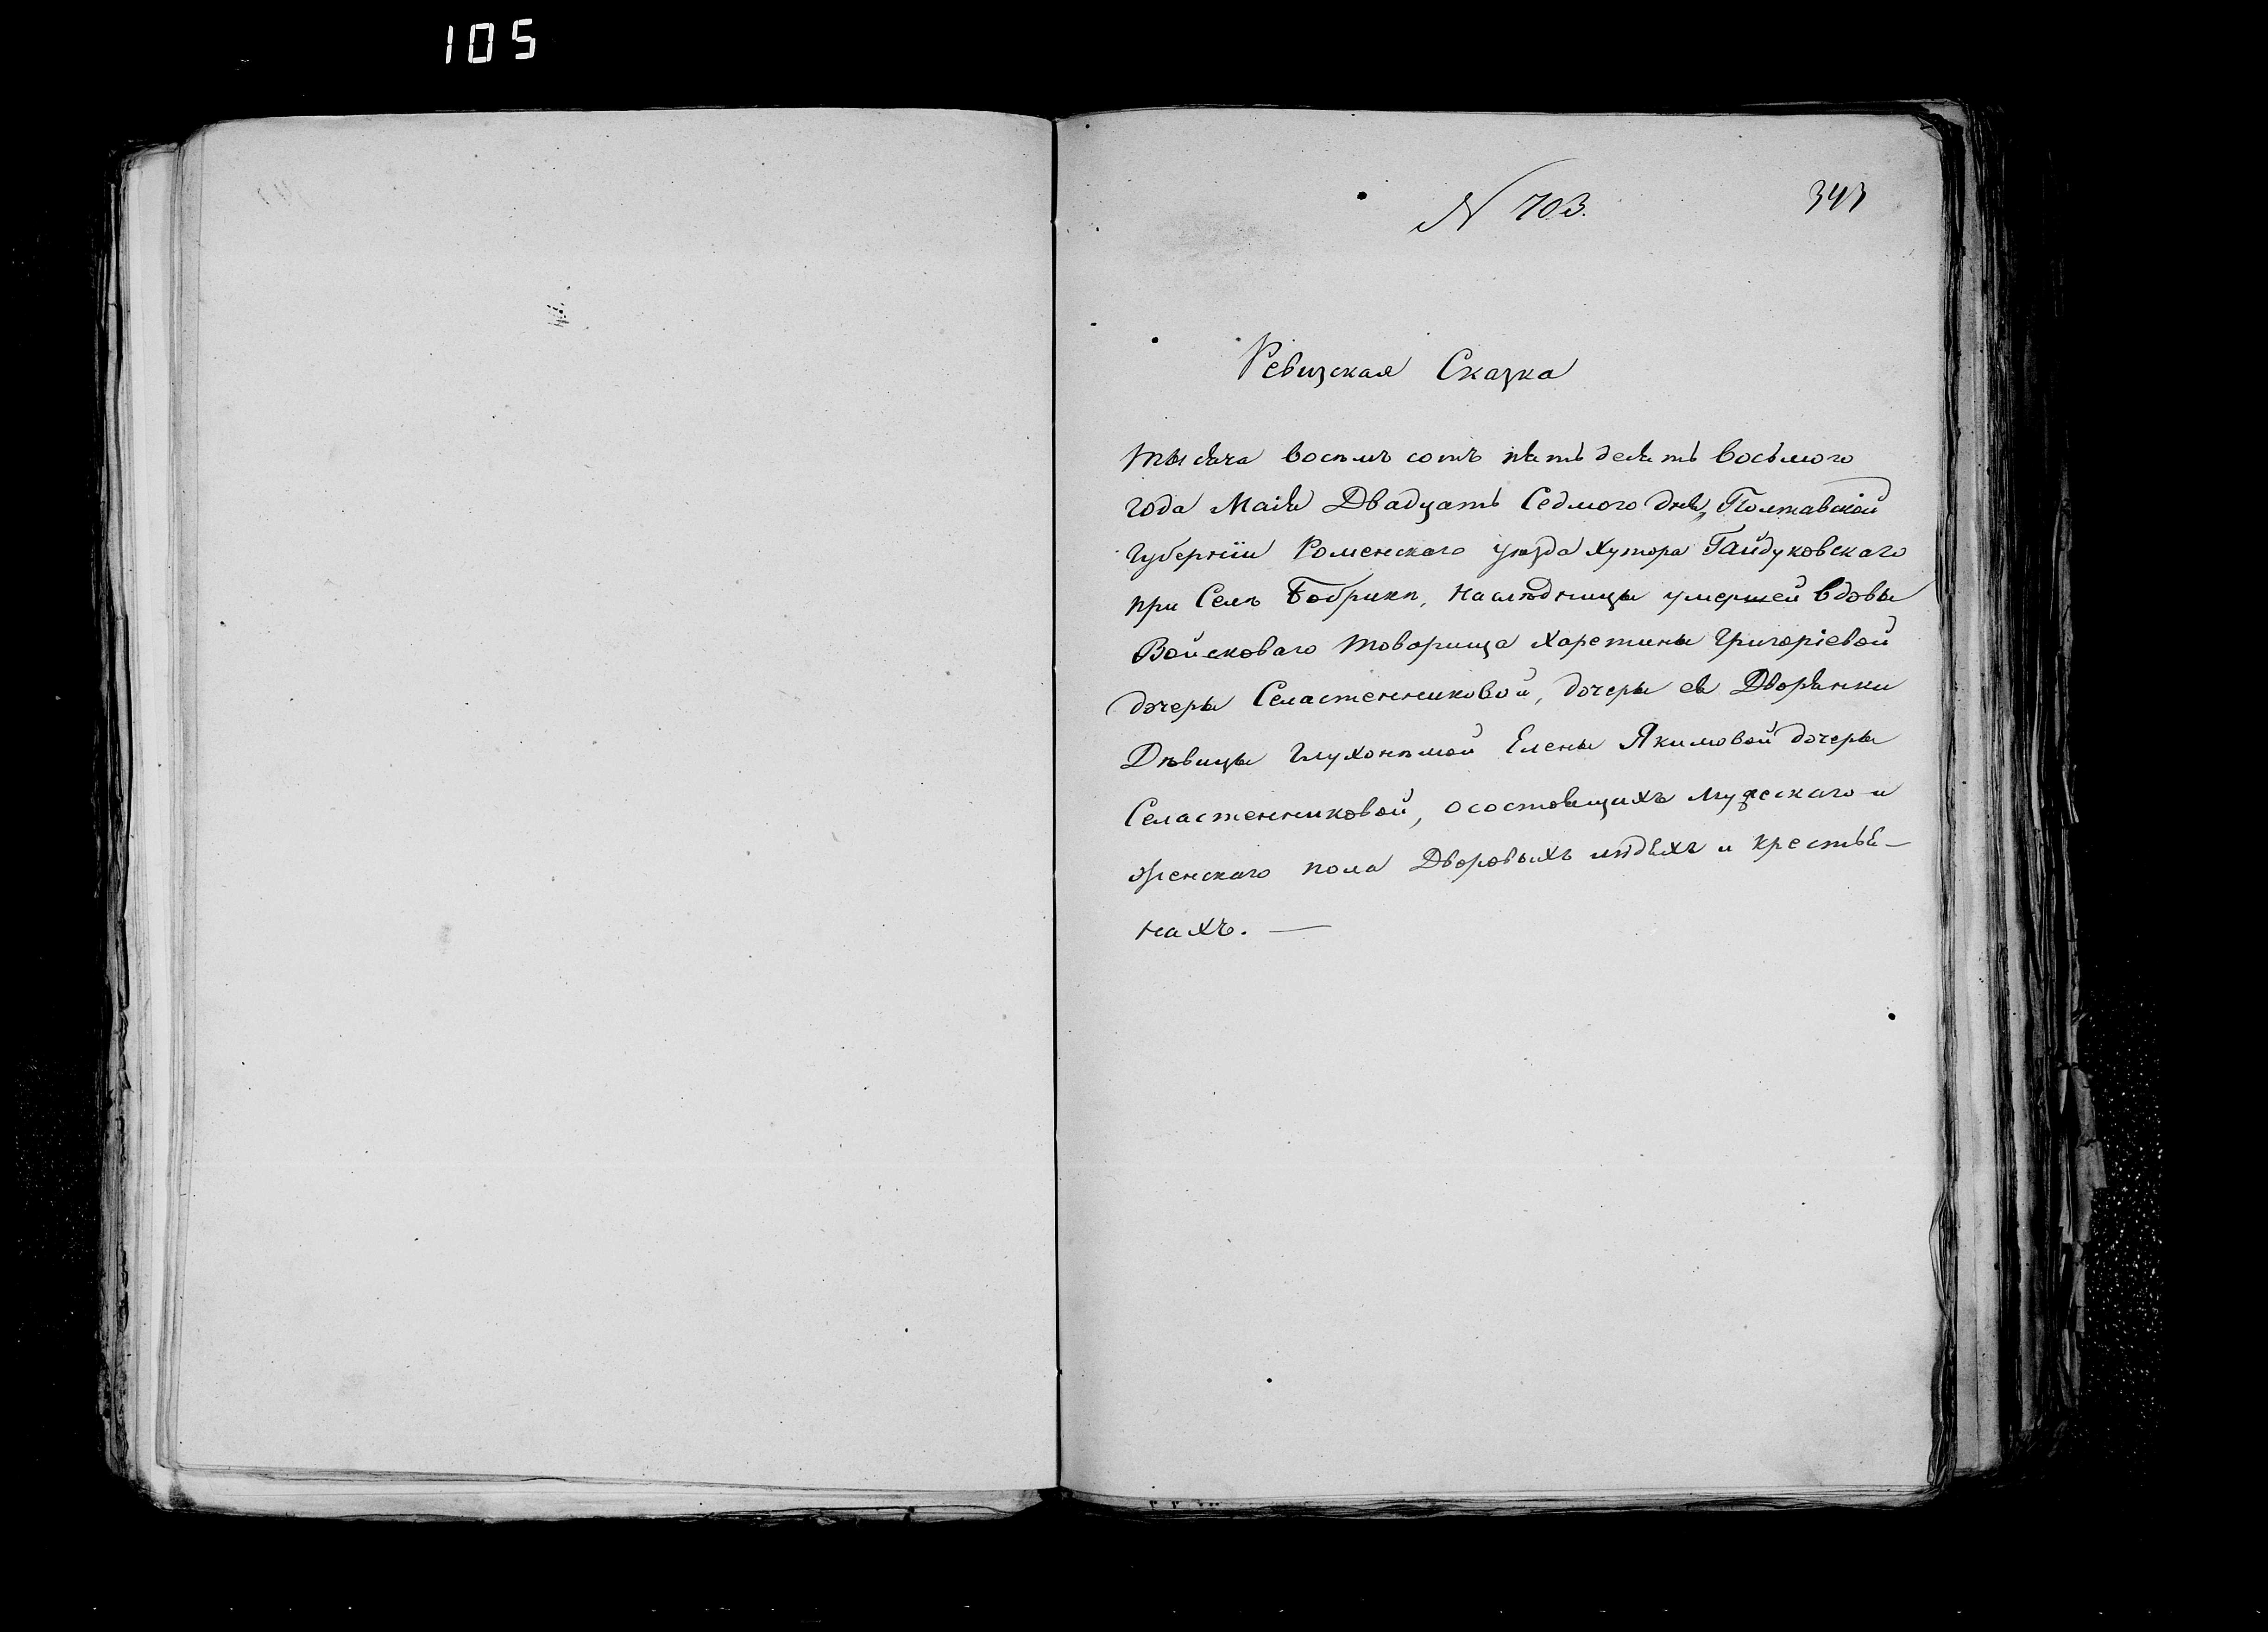 105
N 703.
343
Ревизская Сказка
тысяча восемъ сотъ пять десять восьмого
года Маія Двадцать Седмого дня, Полтавской
Губерніи Роменскаго уѣзда Хутора Гайдуковскаго
при Селѣ Бобрикѣ, наслѣдницы умершей вдовы
Войсковаго товарища Харетины Григоріевой
дочеры Селастенниковой, дочеры ея Дворянки
Дѣвицы Глухонѣмой Елены Якимовой дочеры
Селастенниковой, осостоящихъ мужескаго и
женскаго пола Дворовыхъ людяхъ и крестья-
нахъ. —